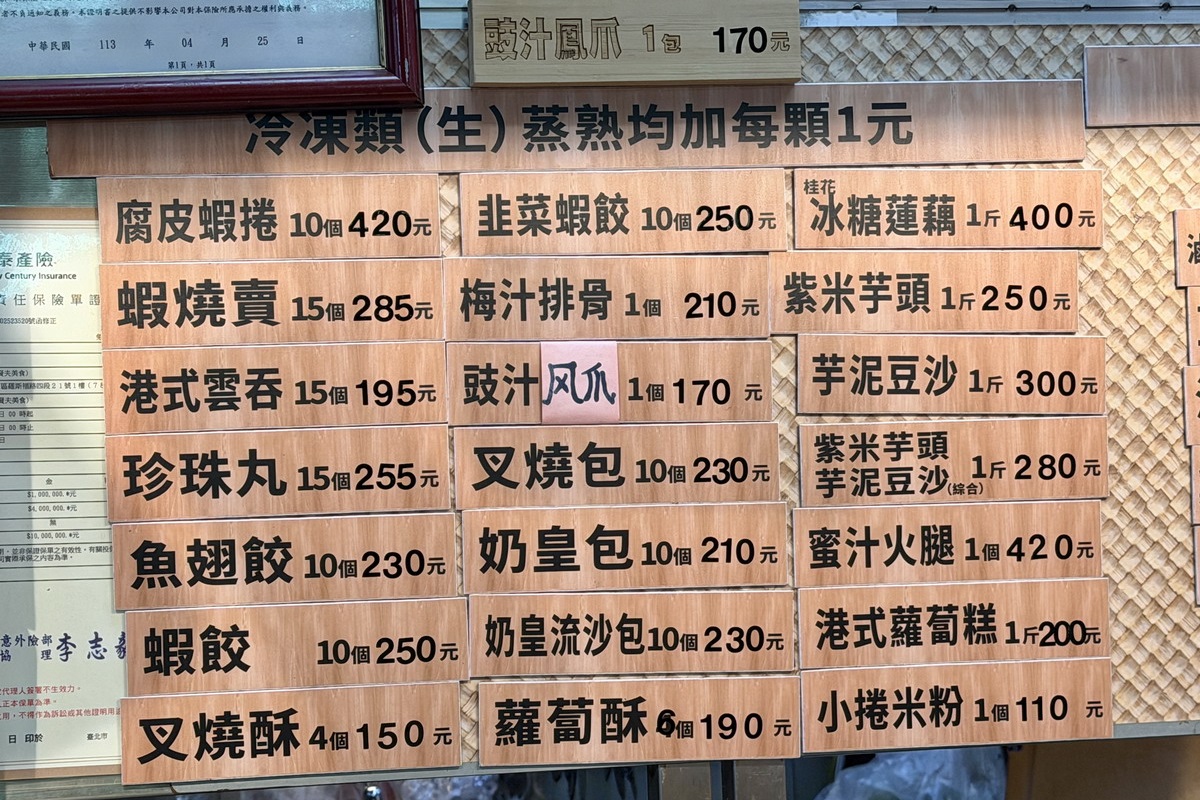 中華民國 113 年 04 月 25 日
第1頁，共1頁
豉汁鳳爪 1包 170元
冷凍類(生)蒸熟均加每顆1元
腐皮蝦捲 10個 420元
蝦燒賣 15個 285元
港式雲吞 15個 195元
珍珠丸 15個 255元
魚翅餃 10個 230元
蝦餃 10個 250元
叉燒酥 4個 150元
韭菜蝦餃 10個 250元
梅汁排骨 1個 210元
豉汁风爪 1個 170元
叉燒包 10個 230元
奶皇包 10個 210元
奶皇流沙包 10個 230元
蘿蔔酥 6個 190元
桂花
冰糖蓮藕 1斤 400元
紫米芋頭 1斤 250元
芋泥豆沙 1斤 300元
紫米芋頭
芋泥豆沙(綜合) 1斤 280元
蜜汁火腿 1個 420元
港式蘿蔔糕 1斤 200元
小捲米粉 1個 110元
泰產險
y Century Insurance
責任保險單證
$1,000,000.*元
$4,000,000.*元
無
$10,000,000.*元
意外險部
協 理 李志毅
代理人簽署不生效力。
正本保單為準。
日 印於 臺北市